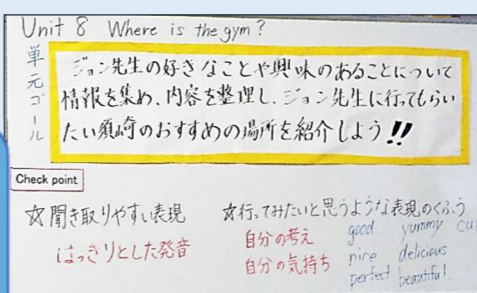 Unit 8 Where is the gym?
単元ゴール
ジョン先生の好きなことや興味のあることについて
情報を集め、内容を整理し、ジョン先生に行ってもらい
たい須崎のおすすめの場所を紹介しよう!!
Check point
☆聞き取りやすい表現
はっきりとした発音
☆行ってみたいと思うような表現のくふう
自分の考え
自分の気持ち
good yummy
nice delicious
perfect beautiful